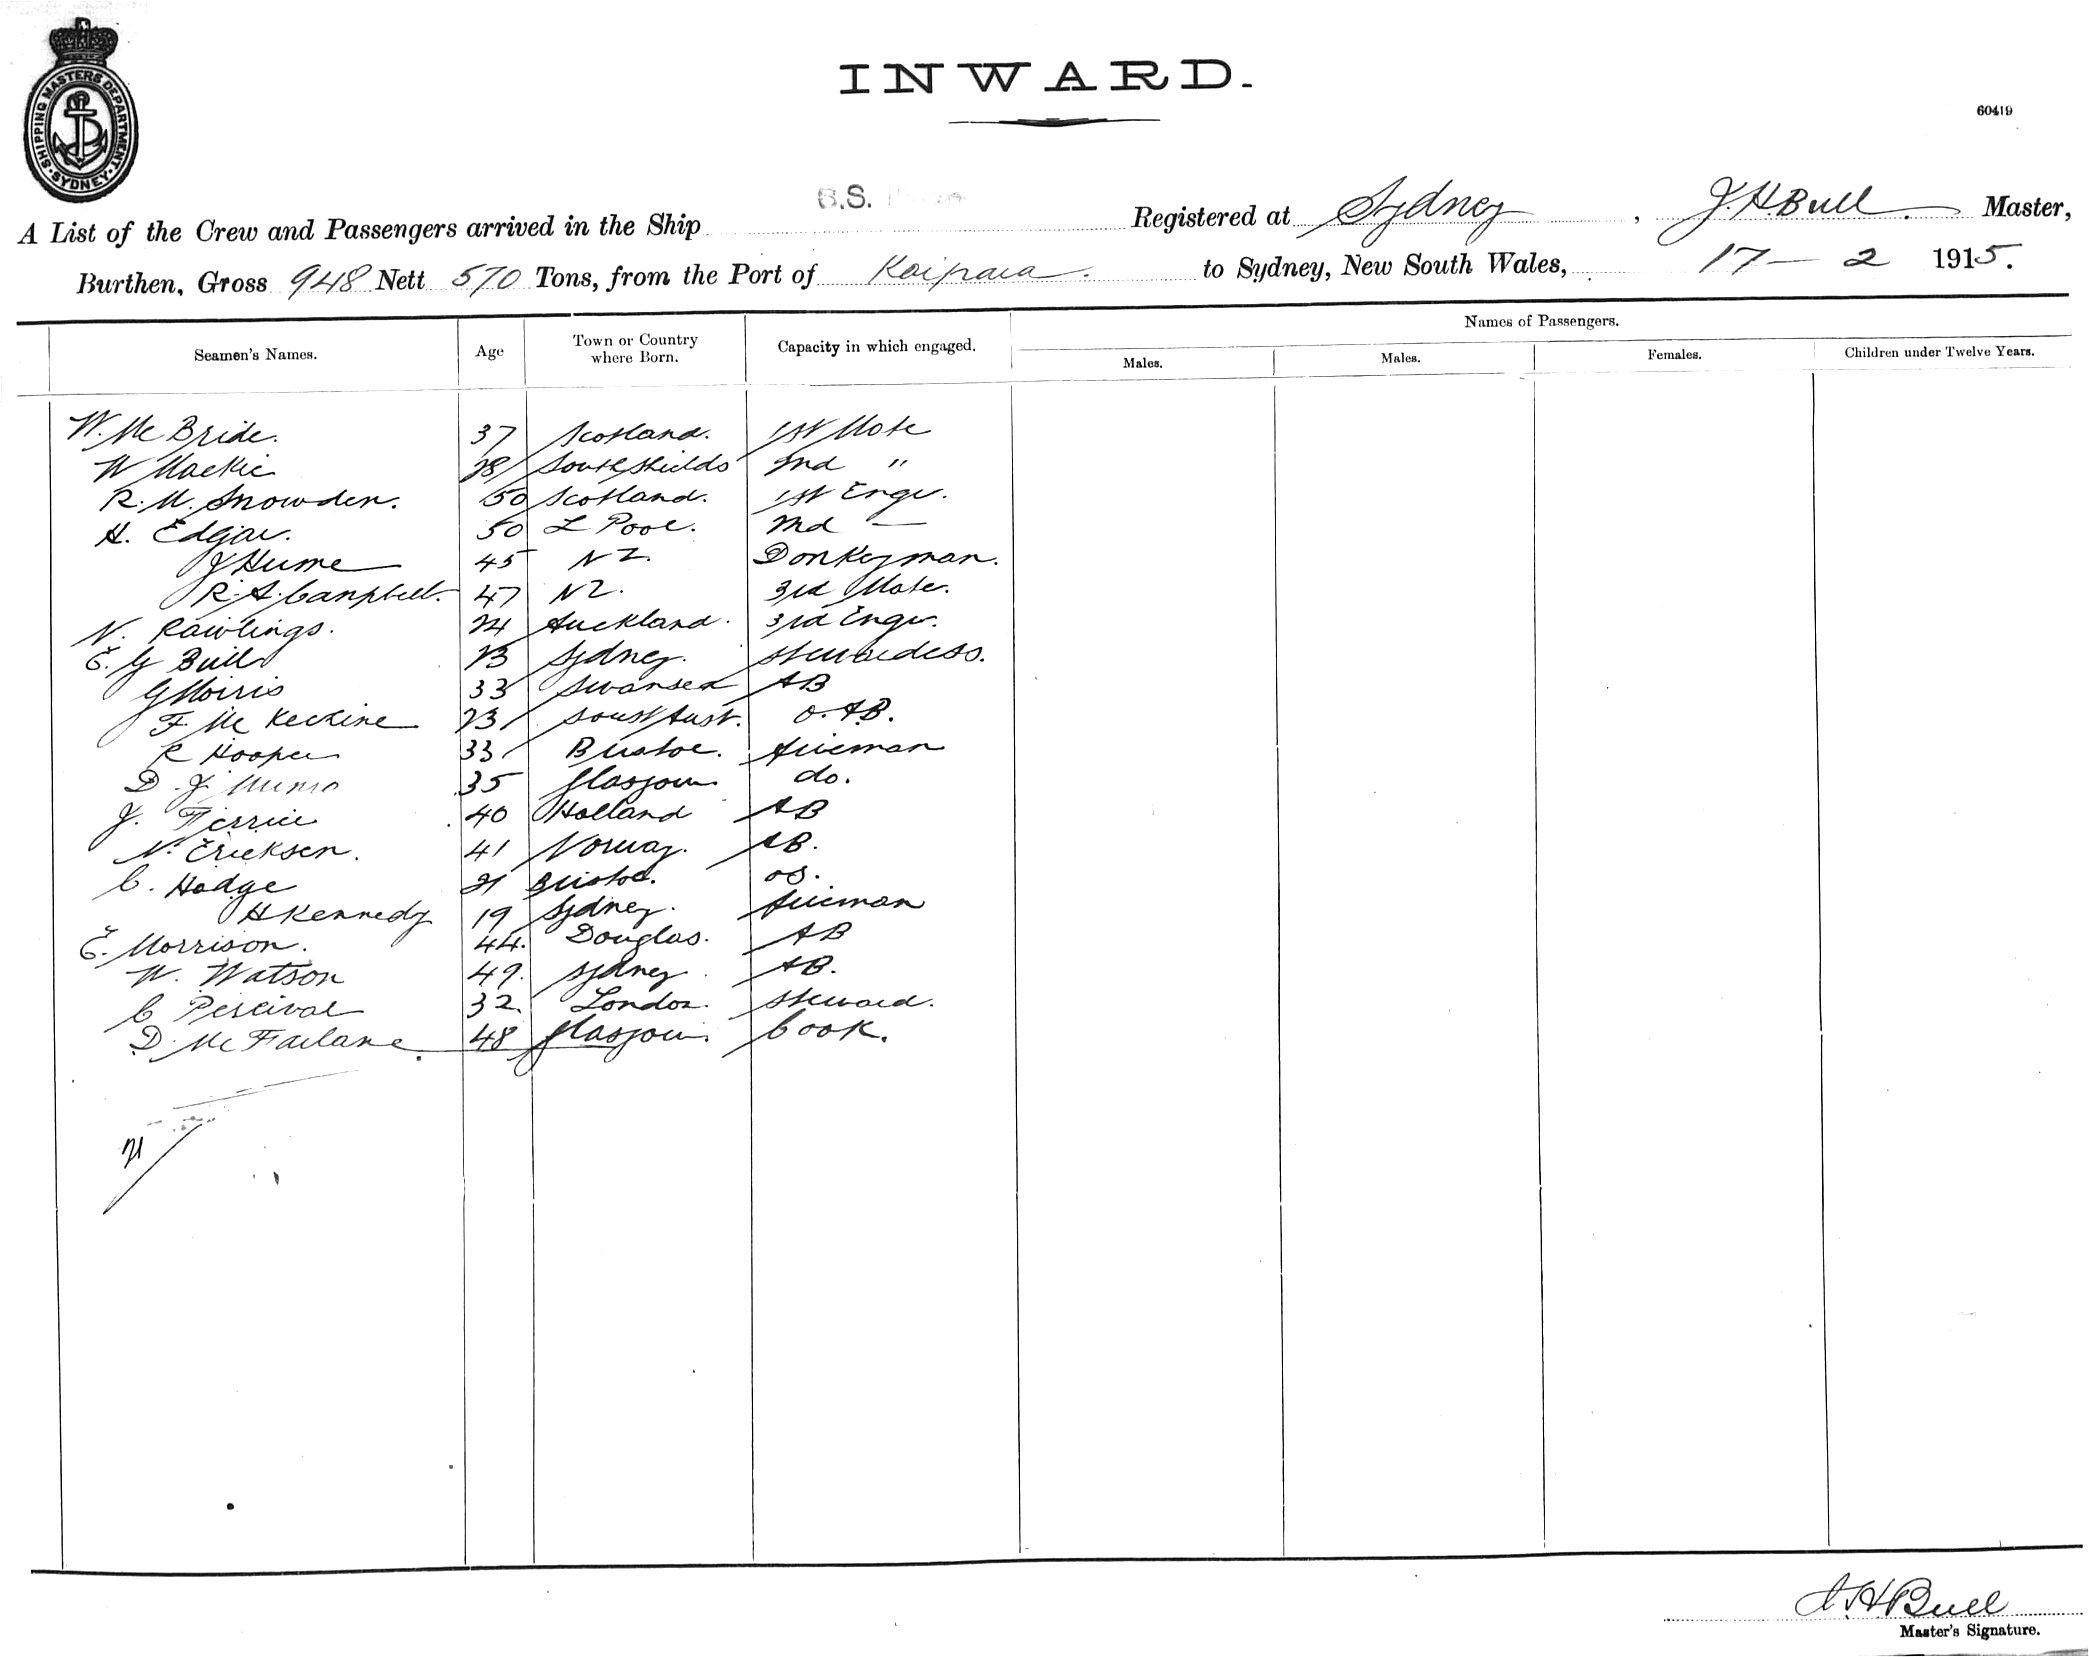 SHIPPING MASTERS DEPARTMENT
SYDNEY
INWARD.
60419
A List of the Crew and Passengers arrived in the Ship S.S. Registered at Sydney, J. H. Bull. Master,
Burthen, Gross 948 Nett 570 Tons, from the Port of Kaipara. to Sydney, New South Wales, 17 - 2 1915.
Seamen's Names. Age Town or Country where Born. Capacity in which engaged. Names of Passengers.
Males. Males. Females. Children under Twelve Years.
W. Mc Bride. 37 Scotland. 1st Mate
W Mackie 28 South Shields 2nd "
R. M. Snowden. 50 Scotland. 1st Engr.
H. Edgar. 50 L Pool. 2nd —
J Hume 45 N Z. Donkeyman.
R. A. Campbell. 47 N Z. 3rd Mate.
N. Rawlings. 24 Auckland. 3rd Engr.
E. G Bull 23 Sydney. Stewardess.
G Morris 33 Swansea AB
F. Mc 23 South Aust. O. AB.
R Hooper 33 Bristol. Fireman
D. J. Munro 35 Glasgow do.
J. 40 Holland AB
N. Ericksen. 41 Norway. AB.
C. Hodge 21 Bristol. OS.
H Kennedy 19 Sydney. Fireman
E. Morrison. 44. Douglas. AB
W. Watson 49. Sydney. AB.
C Percival 32. London. Steward.
D. Mc Farlane. 48 Glasgow. Cook.
21
J. H Bull
Master's Signature.